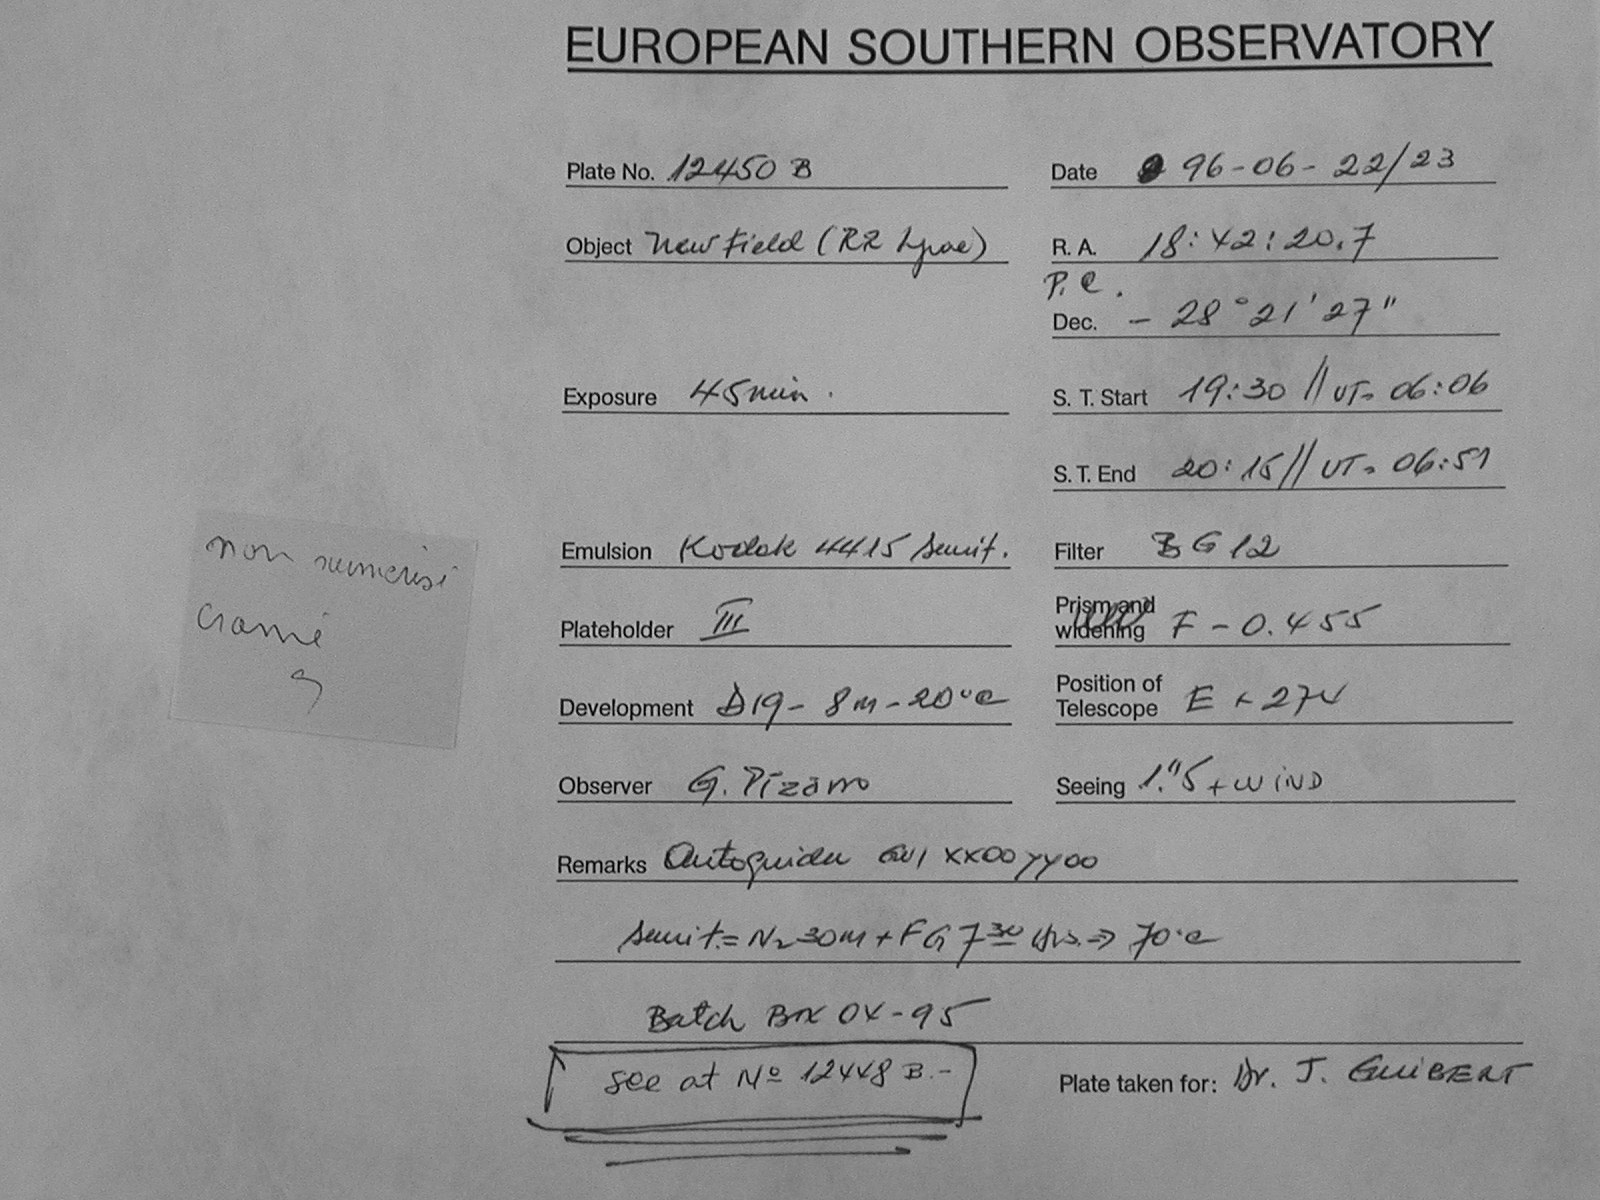 EUROPEAN SOUTHERN OBSERVATORY
Plate No. 12450 B
Date 96-06-22/23
Object New Field (RR Lyrae)
R. A. 18:42:20.7
P. e.
Dec. - 28°21'27"
Exposure 45min.
S. T. Start 19:30 // UT= 06:06
S. T. End 20:15 // UT= 06:51
Emulsion Kodak 4415 sensit.
Filter BG12
Plateholder III
Prism and widening F - 0.455
Development D19 - 8m - 20°c
Position of Telescope E + 274
Observer G. Pizarro
Seeing 1."5 + WIND
Remarks Autoguider GV1 XX00 YY00
sensit.= N2 30m + FG 7 30 hrs. => 70°c
Batch Box 04-95
see at Nº 12448 B.-
Plate taken for: Dr. J. GUIBERT
non numérisé